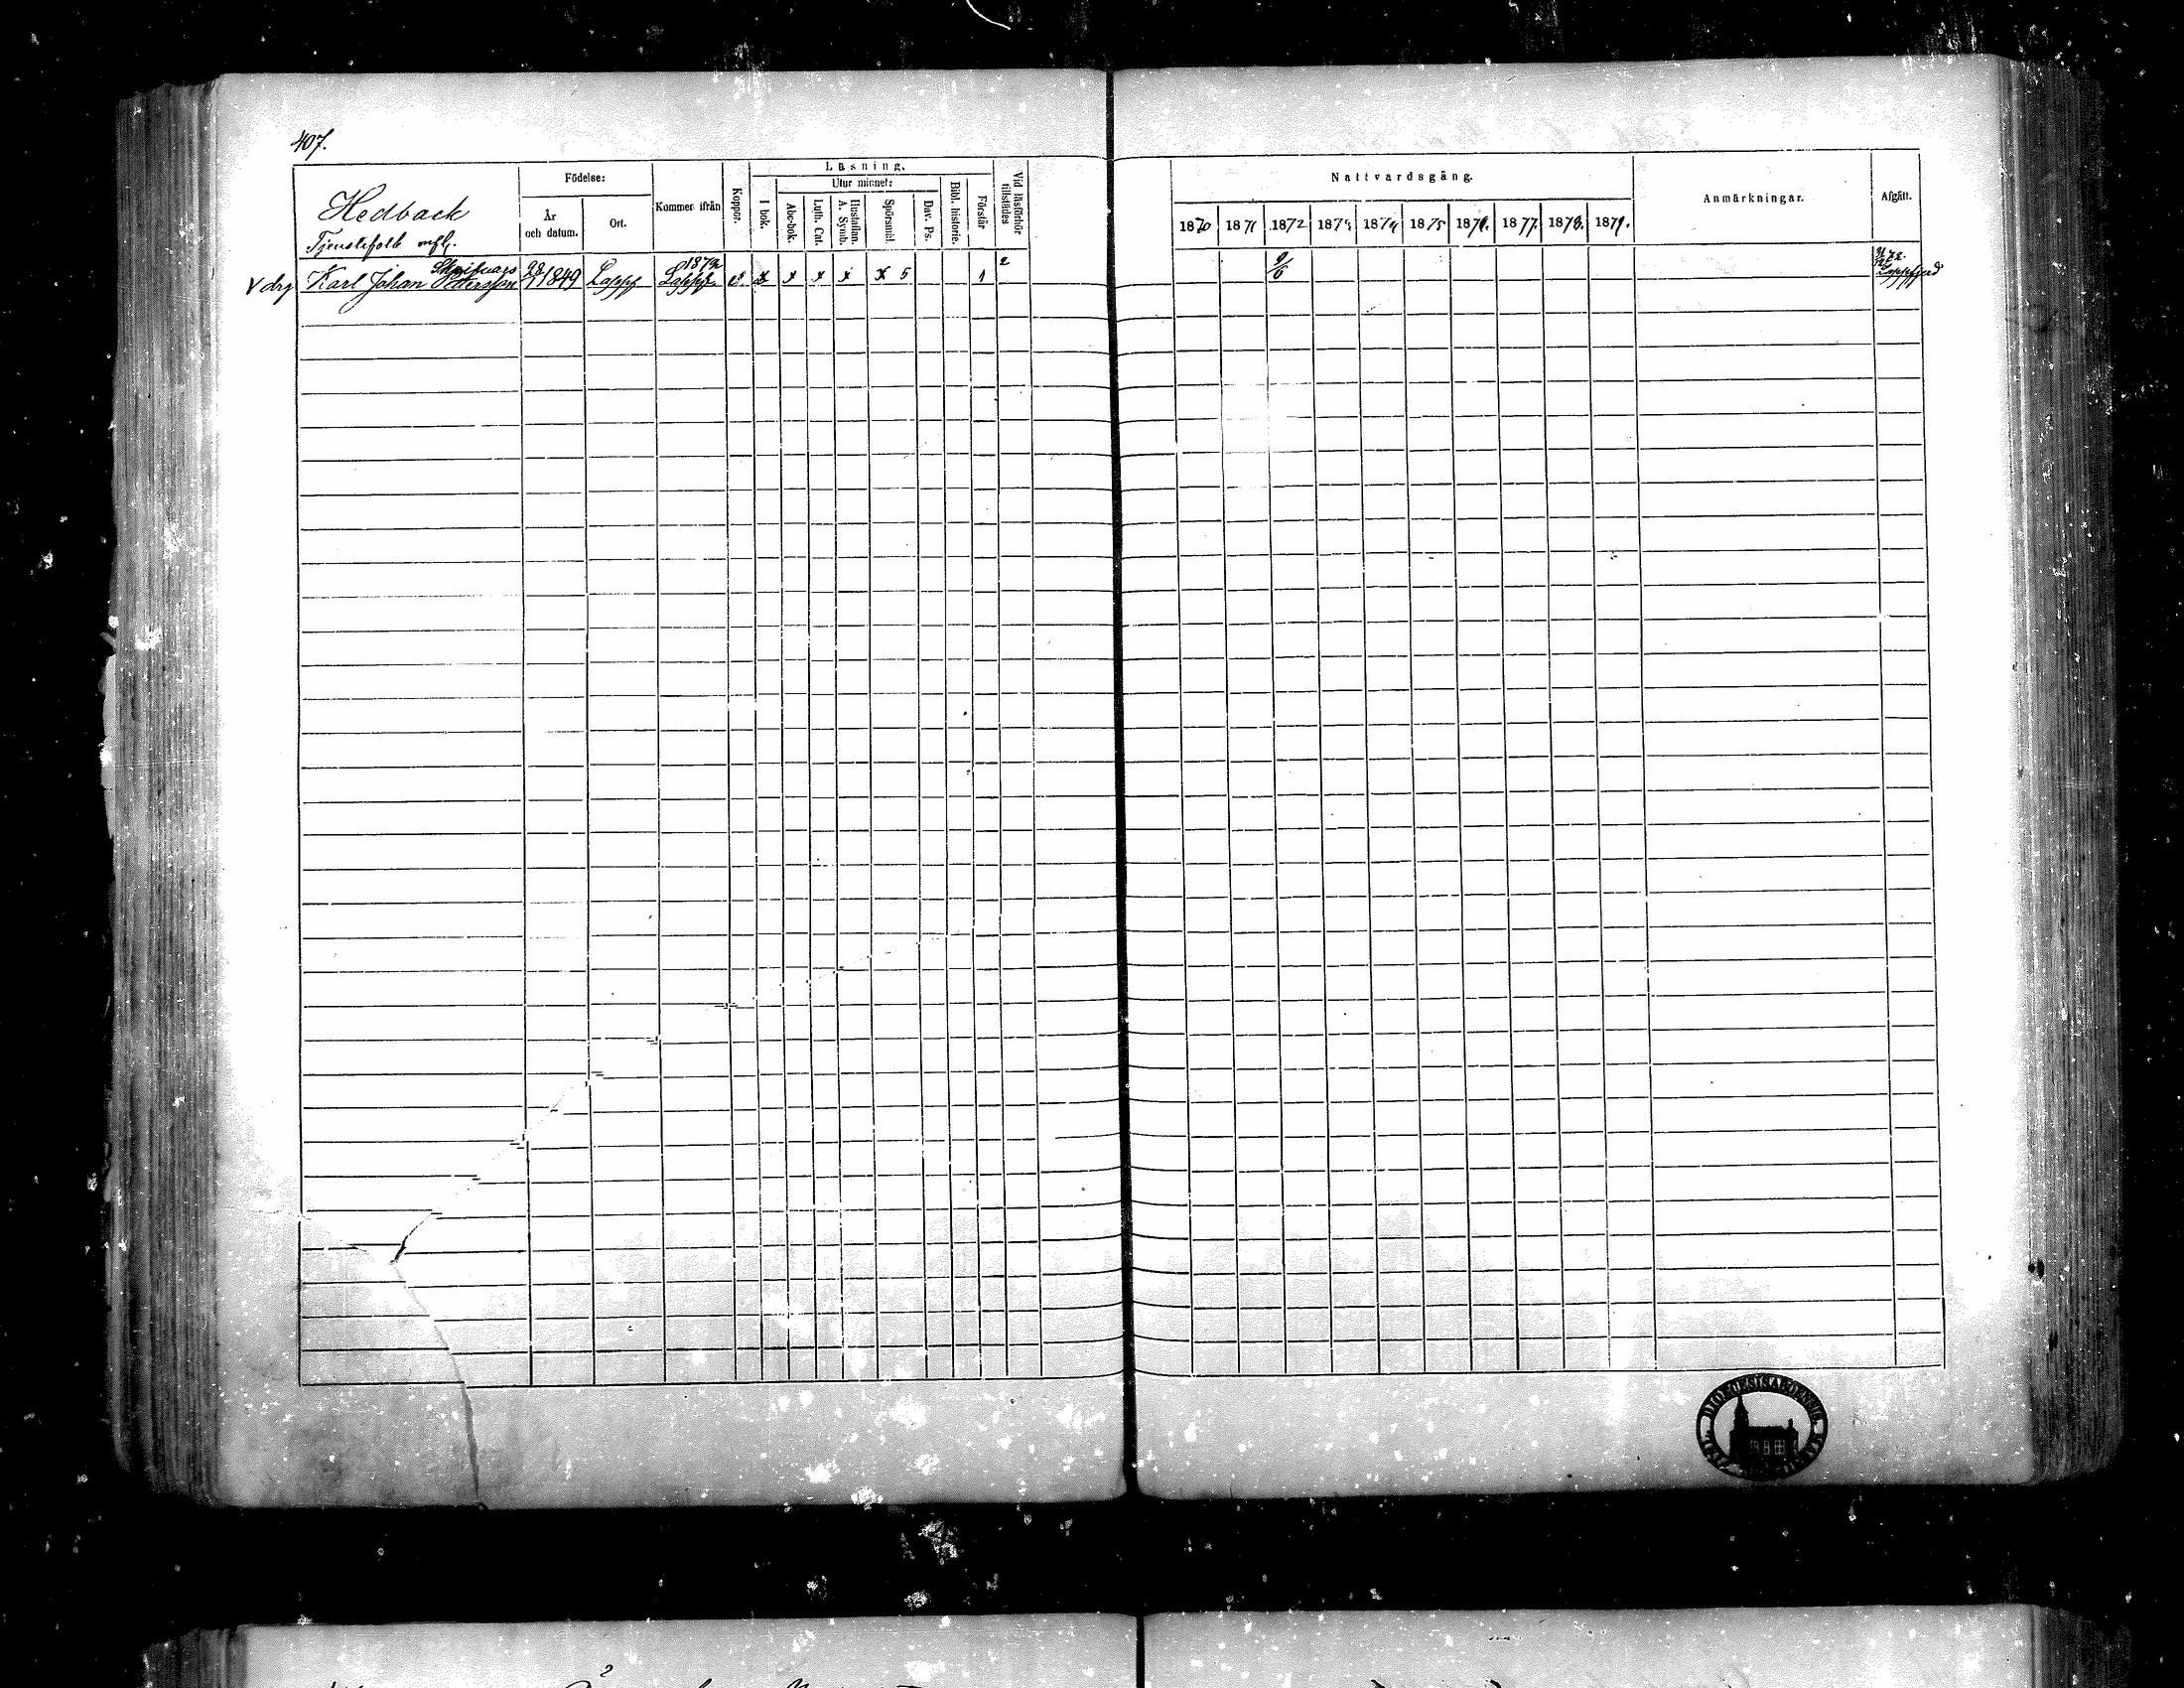 407.
Hedback
Tjenstefolk mfl.
Födelse:
År och datum.
Ort.
Kommer ifrån
Koppor.
Läsning.
I bok.
Utur minnet:
Abc-bok.
Luth. Cat.
Hustaflan. A. Symb.
Spörsmål.
Dav. Ps.
Bibl. historie.
Förstår
Vid läsförhör tillstädes
Nattvardsgång.
1870 1871 1872 1873 1874 1875 1876. 1877. 1878. 1879.
Anmärkningar.
Afgått.
V drg Karl Johan Pettersson 28/1 1849 Lappf 1872 Lappf. x x x x x 5 1 2 9/6 72. Lappfjerd